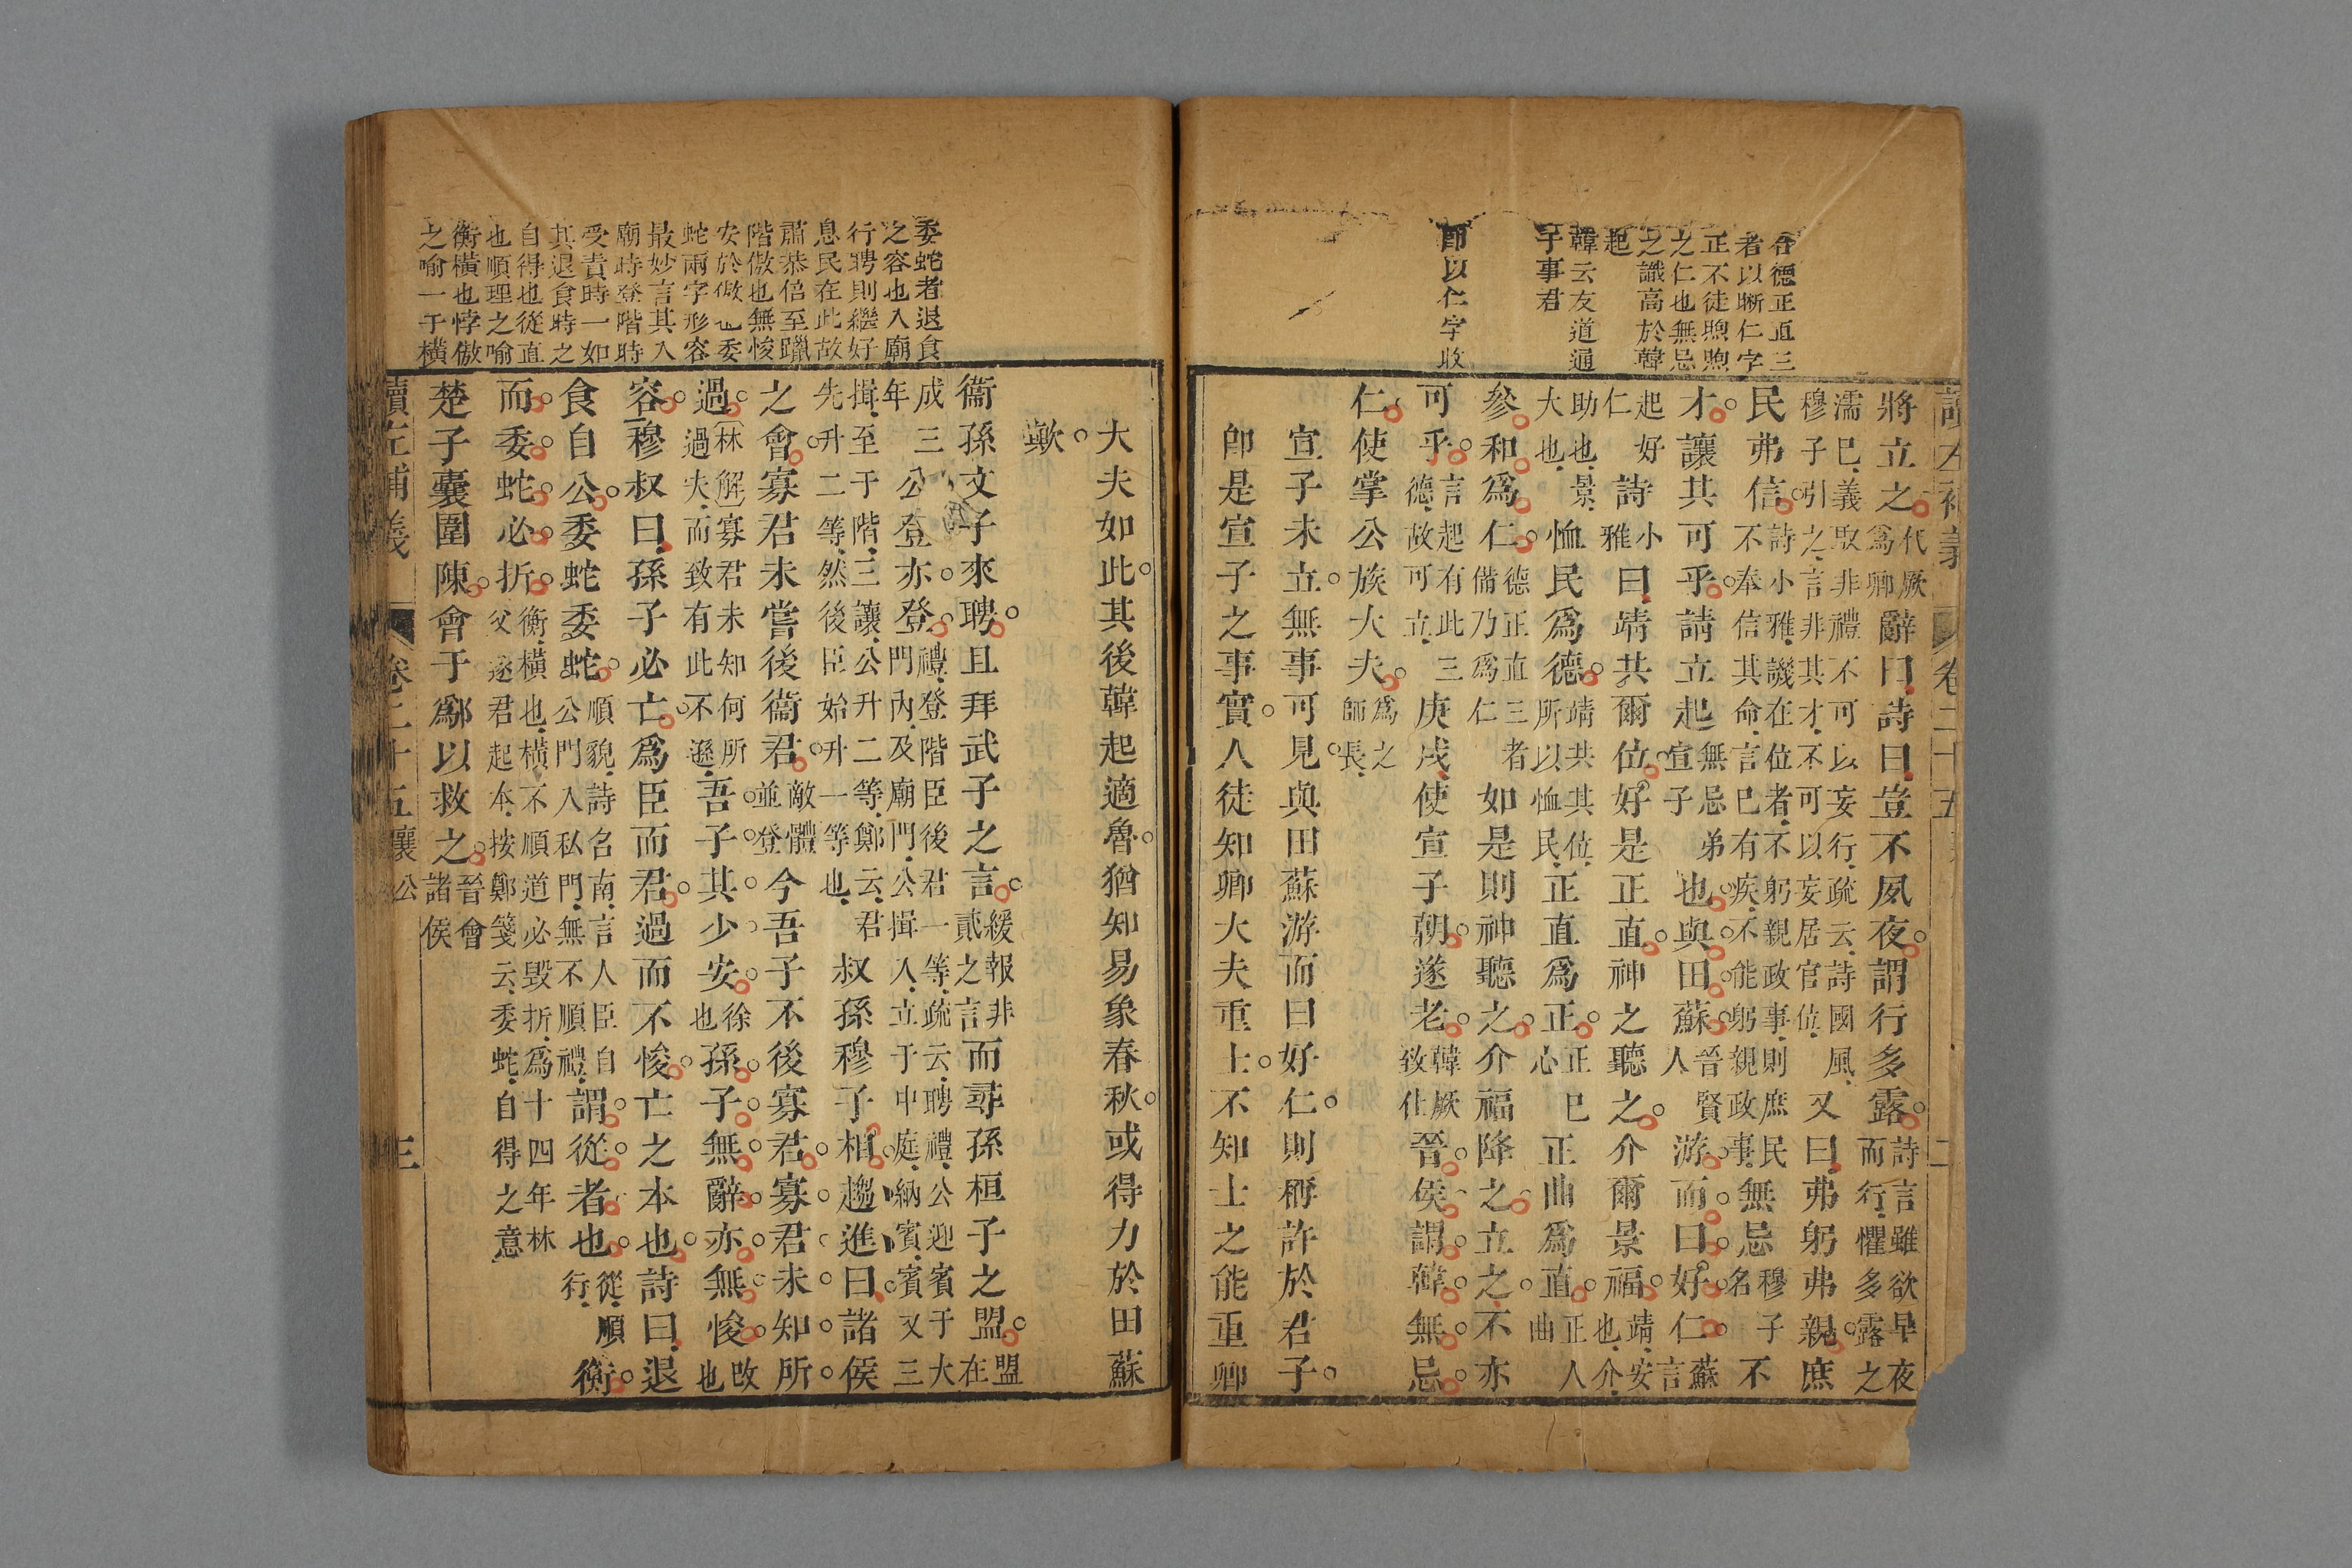 讀左補義 卷二十五 二
在德正直三
者以晰仁字
正不徒煦煦
之仁也無忌
之識高於韓
起
韓云友道通
于事君
卽以仁字收
將立之代厥爲卿辭曰詩曰豈不夙夜謂行多露詩言雖欲早夜而行懼多露之
濡巳義取非禮不可以妄行疏云詩國風穆子引之言非其才不可以妄居官位又曰弗躬弗親庶
民弗信詩小雅譏在位者不躬親政事則庶民不奉信其命言巳有疾不能躬親政事無忌穆子名不
才讓其可乎請立起無忌弟宣子也與田蘇晉賢人游而曰好仁蘇言
起好仁詩小雅曰靖共爾位好是正直神之聽之介爾景福靖安也介
助也景大也恤民爲德靖共其位所以恤民正直爲正正巳心正曲爲直正人曲
參和爲仁德正直三者備乃爲仁如是則神聽之介福降之立之不亦
可乎言起有此三德故可立庚戌使宣子朝遂老韓厥致仕晉侯謂韓無忌
仁使掌公族大夫爲之師長
宣子未立無事可見與田蘇游而曰好仁則稱許於君子
卽是宣子之事實人徒知卿大夫重士不知士之能重卿
大夫如此其後韓起適魯猶知易象春秋或得力於田蘇
歟
委蛇者退食
之容也入廟
行聘則繼好
息民在此故
肅恭倍至躐
階傲也無悛
安於傲也委
蛇兩字形容
最妙言其入
廟時登階時
受責時一如
其退食時之
自得也從直
也順理之喻
衡橫也悖傲
之喻一于橫
衞孫文子來聘且拜武子之言緩報非貳之言而尋孫桓子之盟盟在
成三年公登亦登禮登階臣後君一等疏云聘禮公迎賓于大門內及廟門公揖入立于中庭納賓賓又三
揖至于階三讓公升二等鄭云君先升二等然後臣始升一等也叔孫穆子相趨進曰諸侯
之會寡君未嘗後衞君敵體並登今吾子不後寡君寡君未知所
過林解寡君未知何所過失而致有此不遜吾子其少安徐也孫子無辭亦無悛改也
容穆叔曰孫子必亡爲臣而君過而不悛亡之本也詩曰退
食自公委蛇委蛇順貌詩名南言人臣自公門入私門無不順禮謂從者也從順行衡
而委蛇必折衡橫也橫不順道必毀折爲十四年林父逐君起本按鄭箋云委蛇自得之意
楚子囊圍陳會于鄬以救之晉會諸侯
讀左補義 卷二十五 襄公 三